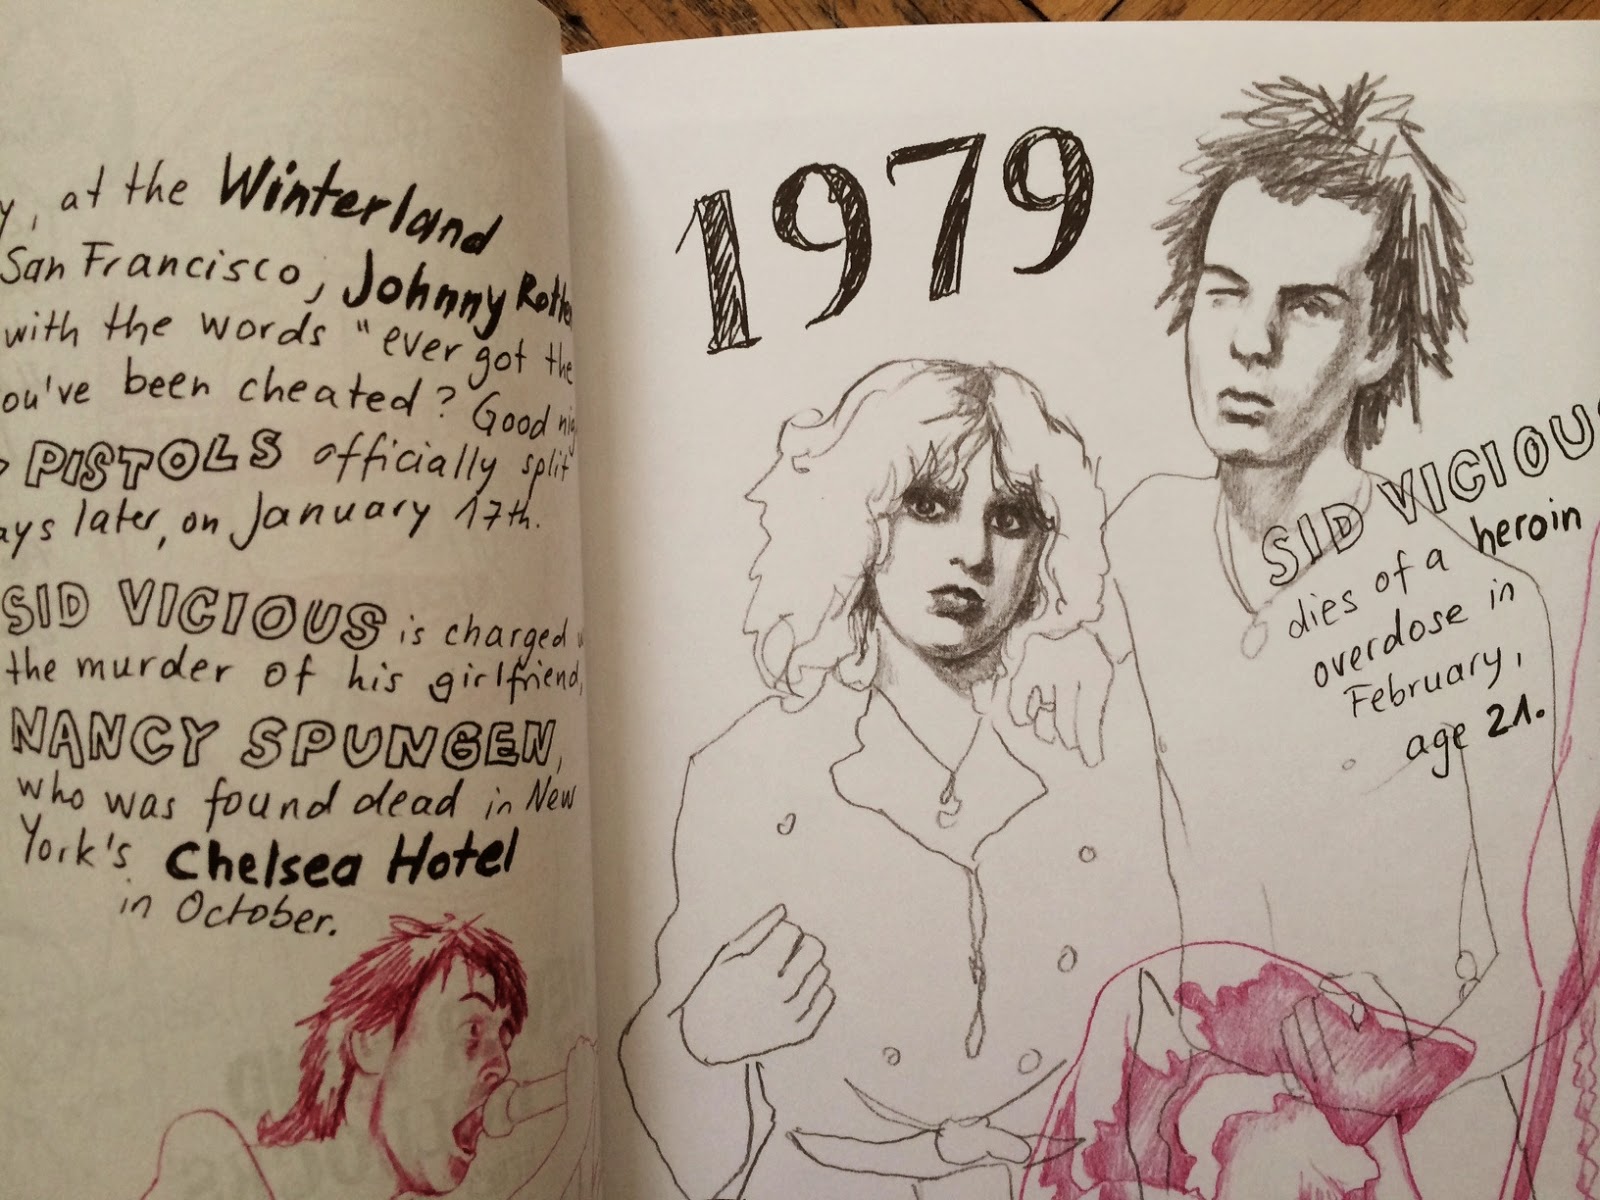 at the Winterland
San Francisco, Johnny
with the words "ever got the
been cheated? Good
PISTOLS officially split
later, on January 17th.
SID VICIOUS is charged
the murder of his girlfriend,
NANCY SPUNGEN,
who was found dead in New
York's Chelsea Hotel
in October.
1979
SID VICIOUS
dies of a heroin
overdose in
February,
age 21.